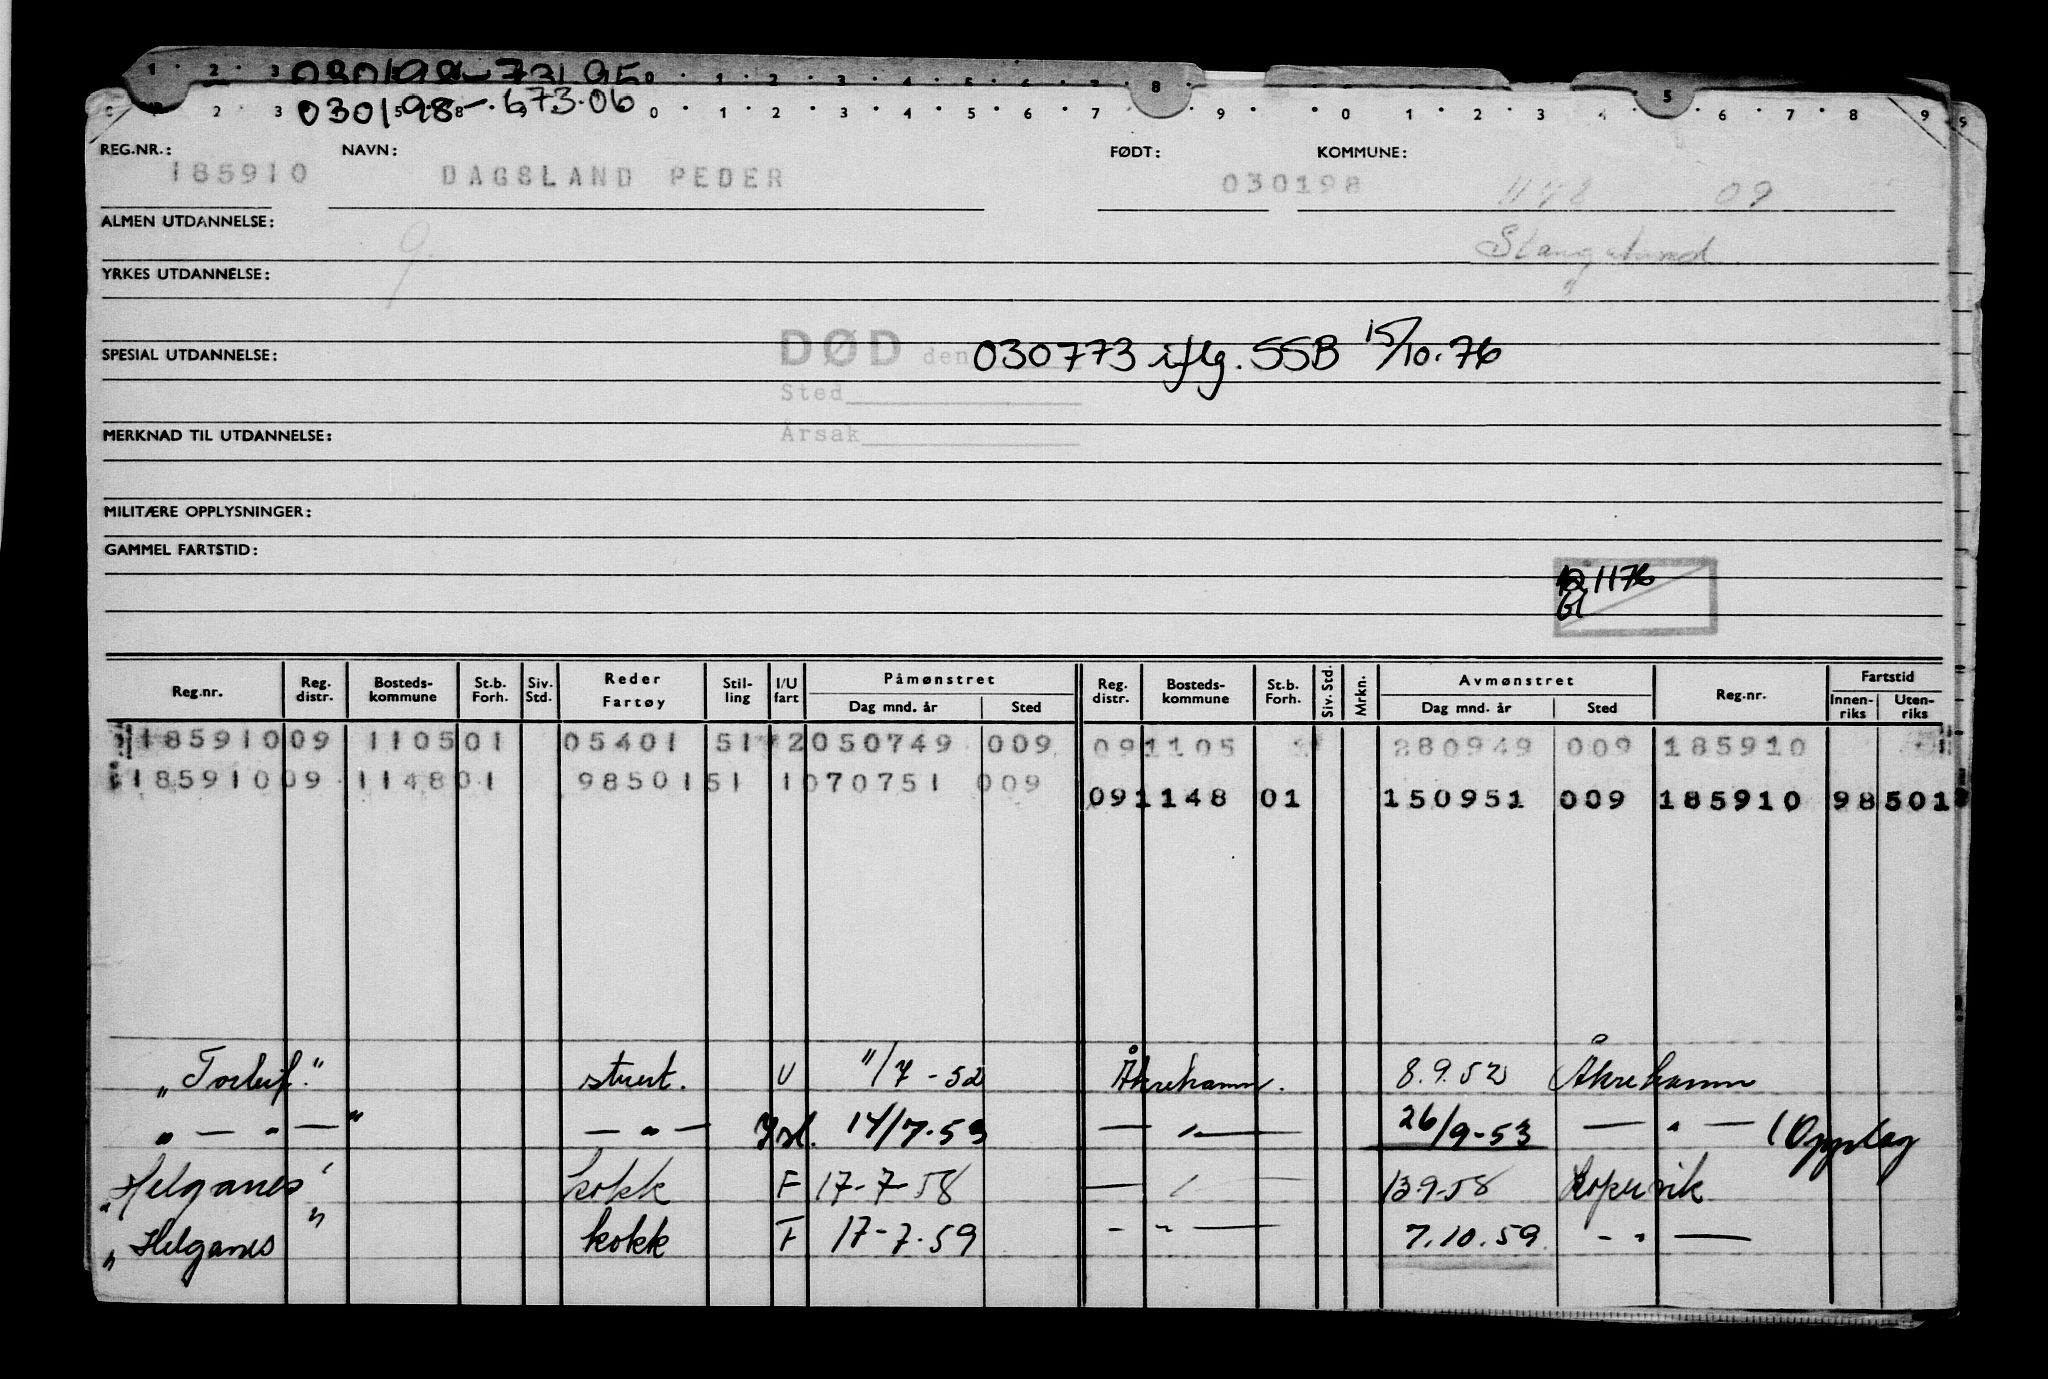 030198-73195
030198-.673.06
REG.NR.: NAVN: FØDT: KOMMUNE:
185910 DAGSLAND PEDER 030198 09
ALMEN UTDANNELSE:
Stangeland
YRKES UTDANNELSE:
DØD den 030773 iflg. SSB 15/10.76
SPESIAL UTDANNELSE:
Sted
Årsak
MERKNAD TIL UTDANNELSE:
MILITÆRE OPPLYSNINGER:
GAMMEL FARTSTID:
1176
Reg.nr. Reg. distr. Bosteds-kommune St.b. Forh. Siv. Std. Reder Fartøy Stil-ling I/U fart Påmønstret Dag mnd. år Sted Reg. distr. Bosteds-kommune St.b. Forh. Siv. Std. Mrkn. Avmønstret Dag mnd. år Sted Reg.nr. Fartstid Innen-riks Uten-riks
185910 09 1105 01 05401 51 2 050749 009 09 1105 280949 009 185910
185910 09 1148 01 98501 51 1 070751 009
09 1148 01 150951 009 185910 98501
„Torleif." stuert. U 11/7-52 Åkrehamn. 8.9.52 Åkrehamn
„ — „ — " — „ — Isl. 14/7-53 — „ — 26/9-53 — „ — (Opplag
„Helganes" kokk F 17-7-58 — „ — 13-9-58 Kopervik
„Helganes" kokk F 17-7.59 - „ — 7.10.59. - „ —